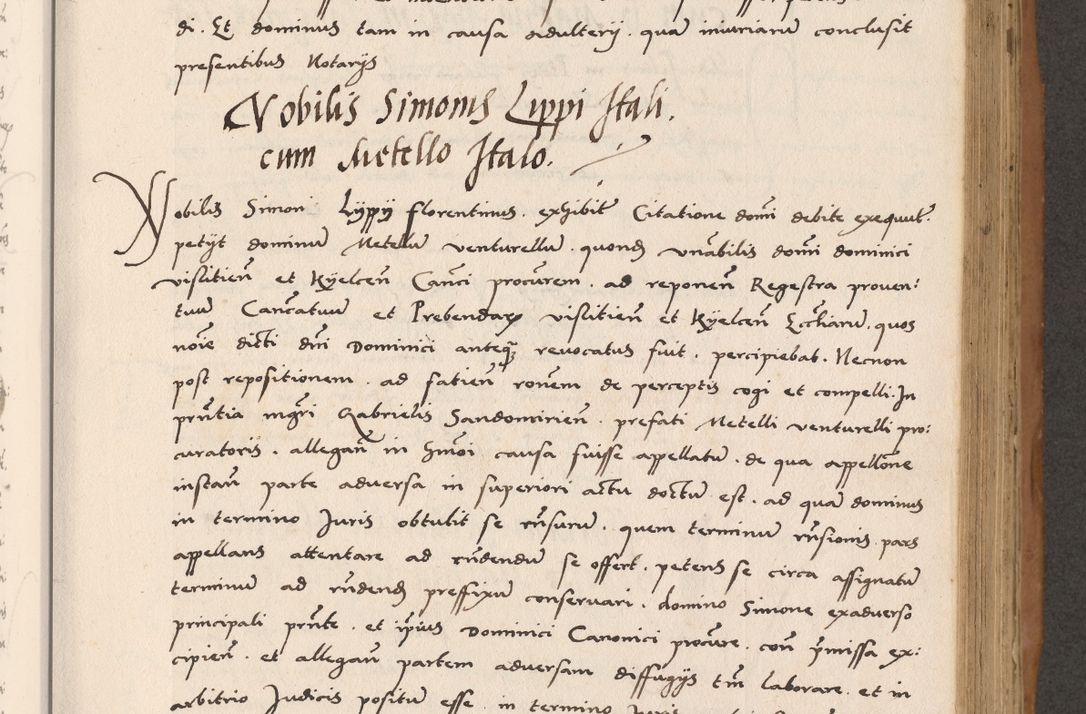 di. Et dominus tam in causa adulterij. quam iniuriarum conclusit
presentibus Notarijs
Nobilis Simonis Lippi Itali.
cum Metello Italo.
Nobilis Simon Lyppij florentinus. exhibit Citatione domi debite exequut.
petijt dominum Metellum venturellum. quond vnabilis domi dominici
vislitien et Kyelcen Canci procurem. ad reponen Regestra proven:
tuum Cancatuum et Prebendarum vislitien et Kyelcen Eccliarum. quos
noie dicti dni Dominici anteq revocatus fuit. percipiebat. Necnon
post repositionem. ad satien ronem de perceptis cogi et compelli. In
prntia mgri Gabrielis Sandomirien. prefati Metelli venturelli pro:
curatoris. allegan in hmoi causa fuisse appellatum. de qua appellone
instan parte adversa in superiori actu doctum est. ad quam dominus
in termino Juris obtulit se rnsurum. quem terminum rnsionis pars
appellans attentare ad rndendum se offert. petens se circa assignatum
terminum ad rndend preffixum conservari. domino Simone exadverso
principali prnte. et ipsius Dominici Canonici procure. con pmissa ex:
cipien. et allegan partem adversam diffugijs tm laborare. et in
arbitrio Judicis positum esse. in termino Juris